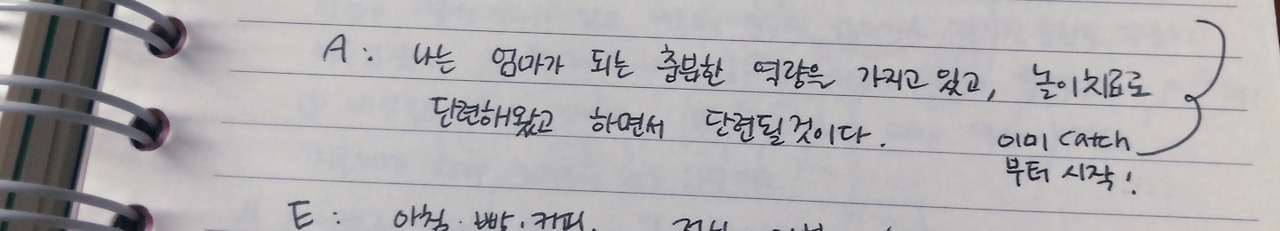 A : 나는 엄마가 되는 충분한 역량을 가지고 있고, 놀이치료로
단련해왔고 하면서 단련될 것이다.
이미 catch
부터 시작!
E : 아침 : 빵, 커피.